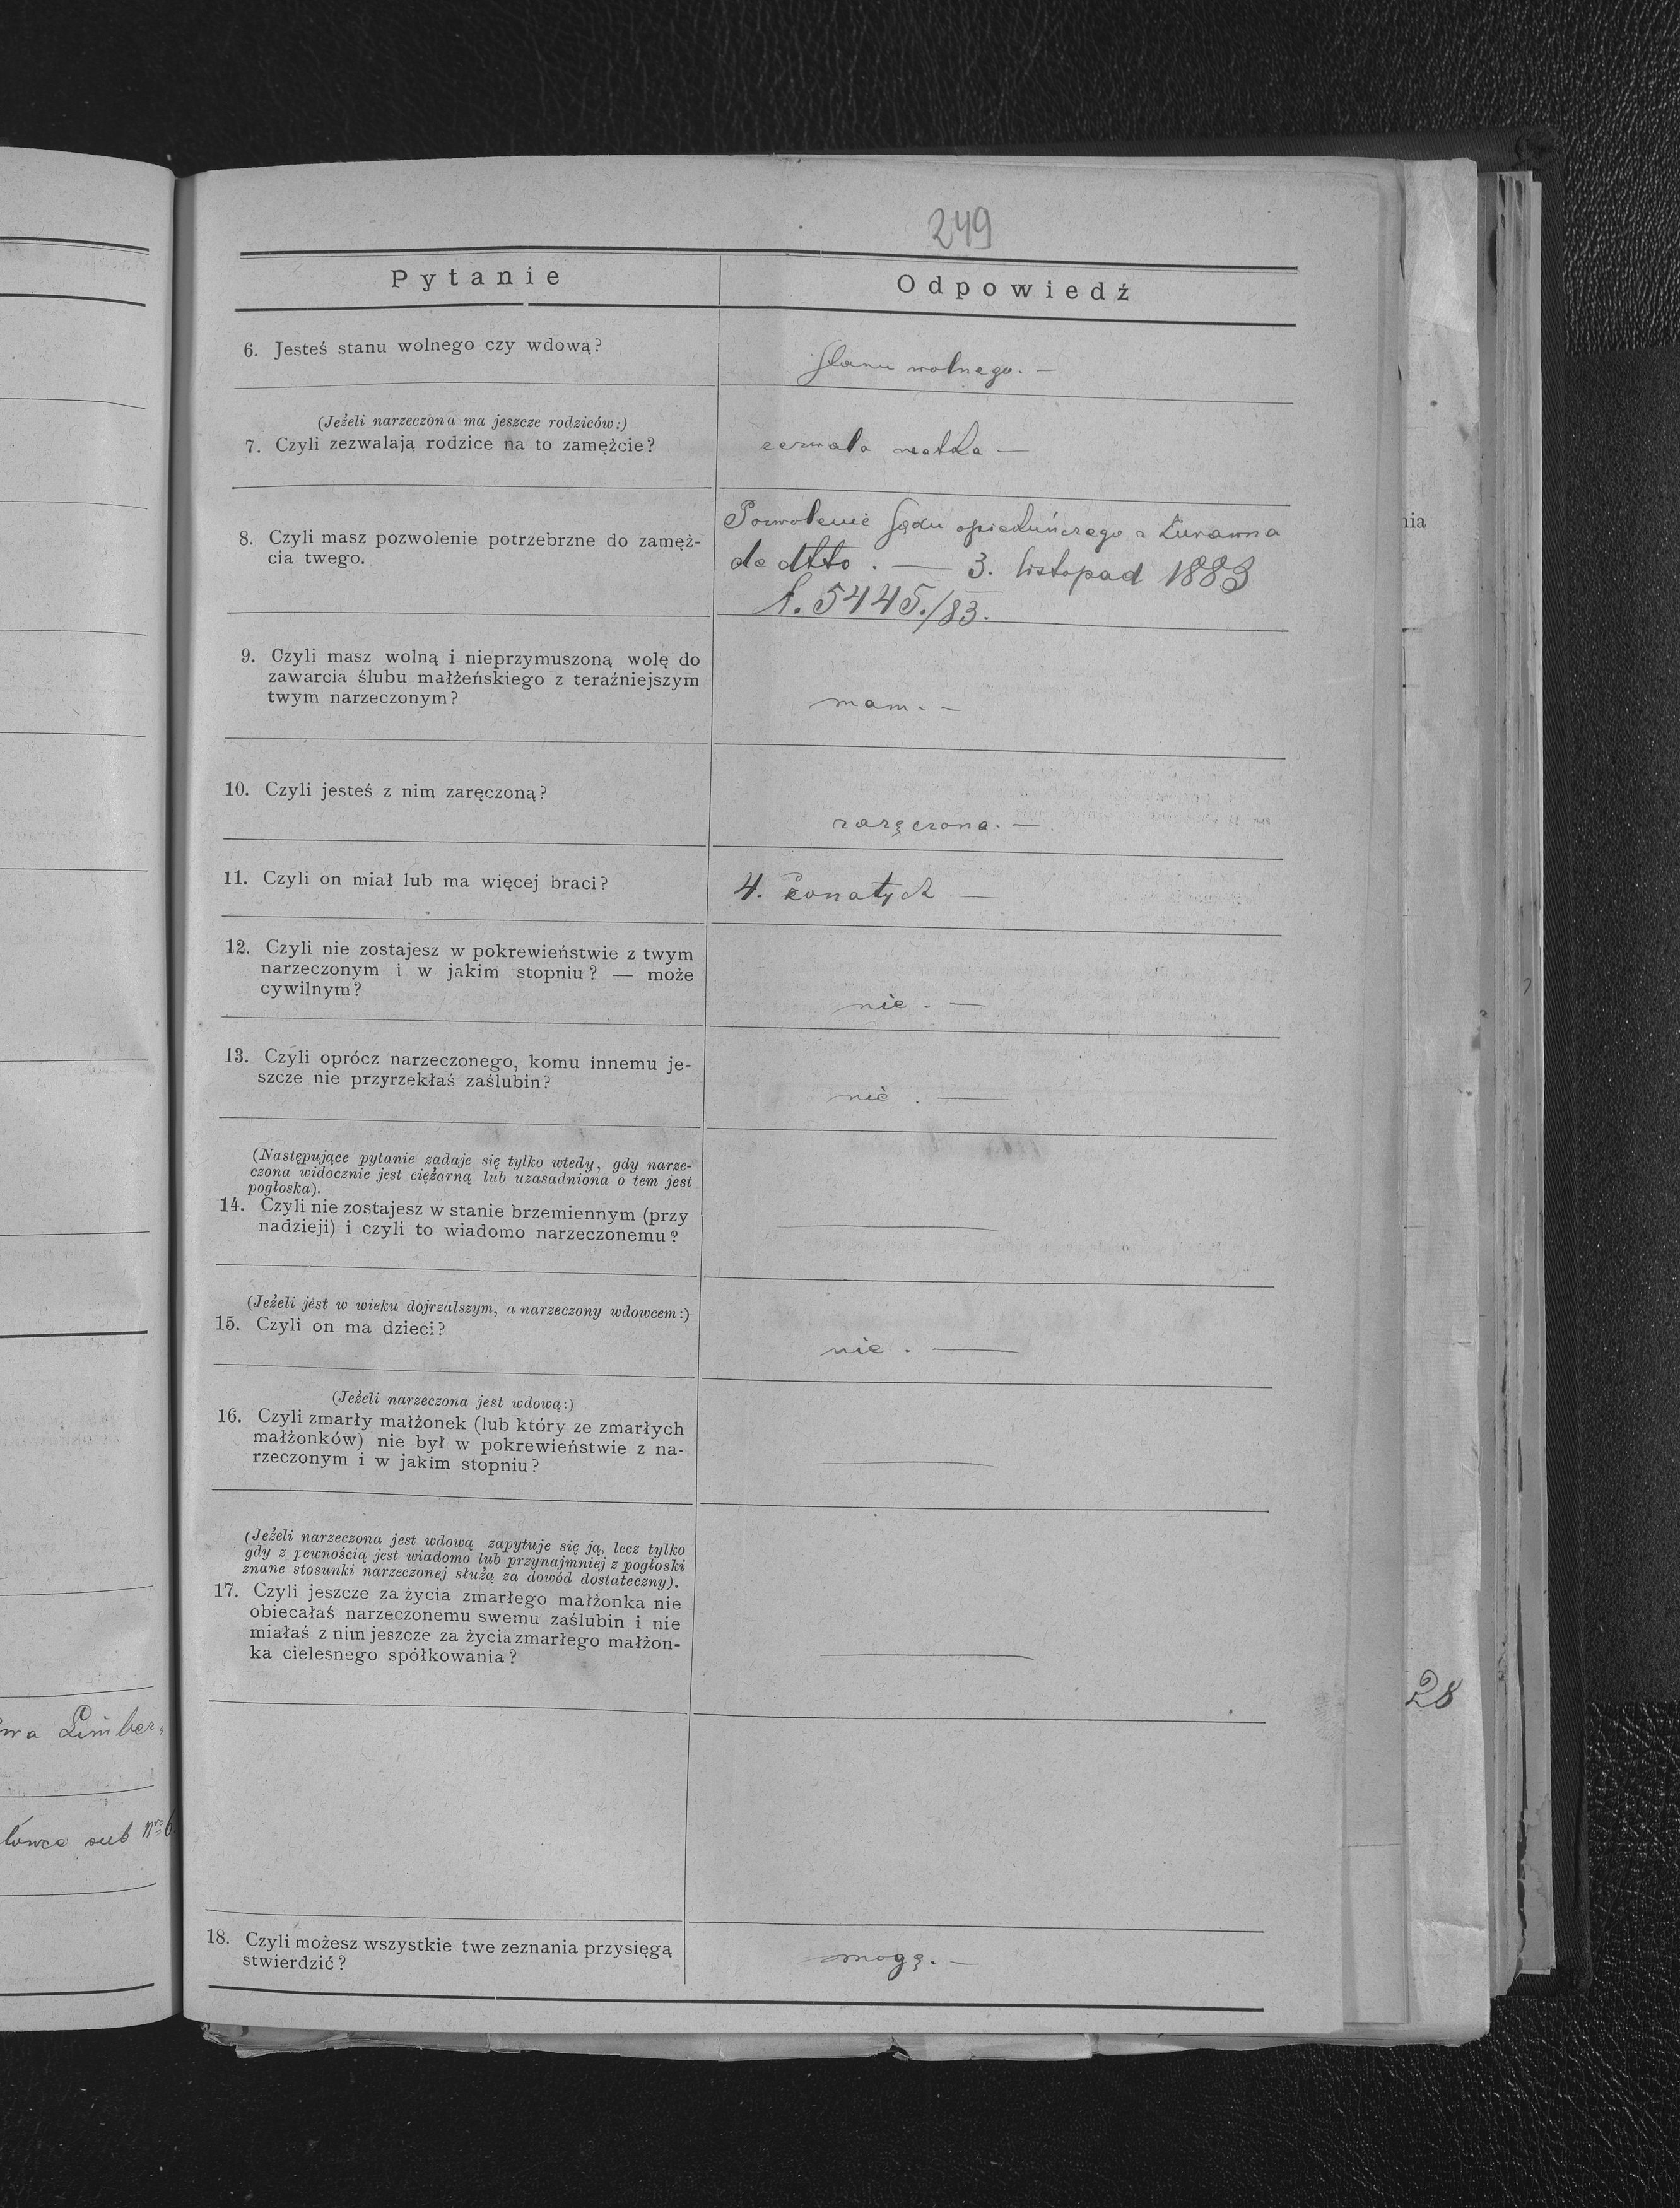 249
Pytanie
Odpowiedź
6. Jesteś stanu wolnego czy wdową?
Stanu wolnego. —
(Jeżeli narzeczona ma jeszcze rodziców:)
7. Czyli zezwalają rodzice na to zamężcie?
zezwala matka —
8. Czyli masz pozwolenie potrzebrzne do zamęż-
cia twego.
Pozwolenie Sądu opiekuńczego z Żurawna
de dtto. — 3. listopad 1883
L. 5445./83.
9. Czyli masz wolną i nieprzymuszoną wolę do
zawarcia ślubu małżeńskiego z teraźniejszym
twym narzeczonym?
mam. —
10. Czyli jesteś z nim zaręczoną?
zaręczona. —
11. Czyli on miał lub ma więcej braci?
4. żonatych —
12. Czyli nie zostajesz w pokrewieństwie z twym
narzeczonym i w jakim stopniu? — może
cywilnym?
nie. —
13. Czyli oprócz narzeczonego, komu innemu je-
szcze nie przyrzekłaś zaślubin?
nie. —
(Następujące pytanie zadaje się tylko wtedy, gdy narze-
czona widocznie jest ciężarną lub uzasadniona o tem jest
pogłoska).
14. Czyli nie zostajesz w stanie brzemiennym (przy
nadzieji) i czyli to wiadomo narzeczonemu?
(Jeżeli jest w wieku dojrzalszym, a narzeczony wdowcem:)
15. Czyli on ma dzieci?
nie. —
(Jeżeli narzeczona jest wdową:)
16. Czyli zmarły małżonek (lub który ze zmarłych
małżonków) nie był w pokrewieństwie z na-
rzeczonym i w jakim stopniu?
(Jeżeli narzeczona jest wdową zapytuje się ją, lecz tylko
gdy z pewnością jest wiadomo lub przynajmniej z pogłoski
znane stosunki narzeczonej służą za dowód dostateczny).
17. Czyli jeszcze za życia zmarłego małżonka nie
obiecałaś narzeczonemu swemu zaślubin i nie
miałaś z nim jeszcze za życia zmarłego małżon-
ka cielesnego spółkowania?
18. Czyli możesz wszystkie twe zeznania przysięgą
stwierdzić?
mogę. —
nia
28
sub Nro 6.